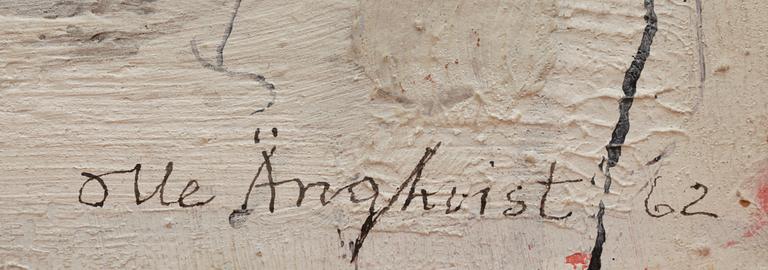 Olle Ängkvist 62